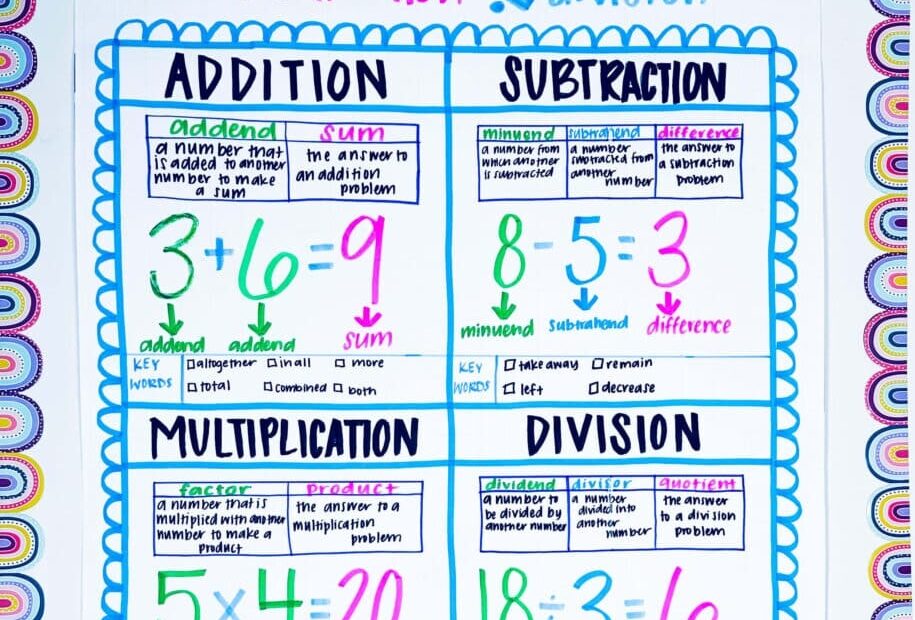 ADDITION
SUBTRACTION
addend sum
a number that
is added to another
number to make
a sum
the answer to
an addition
problem
minuend subtrahend difference
a number from
which another
is subtracted
a number
subtracted from
another
number
the answer to
a subtraction
problem
3+6=9
addend addend sum
8-5=3
minuend subtrahend difference
KEY
WORDS
altogether in all more
total combined both
KEY
WORDS
take away remain
left decrease
MULTIPLICATION
DIVISION
factor product
a number that is
multiplied with another
number to make a
product
the answer to a
multiplication
problem
dividend divisor quotient
a number to
be divided by
another number
a number
divided into
another
number
the answer
to a division
problem
5×4=20
18÷3=6